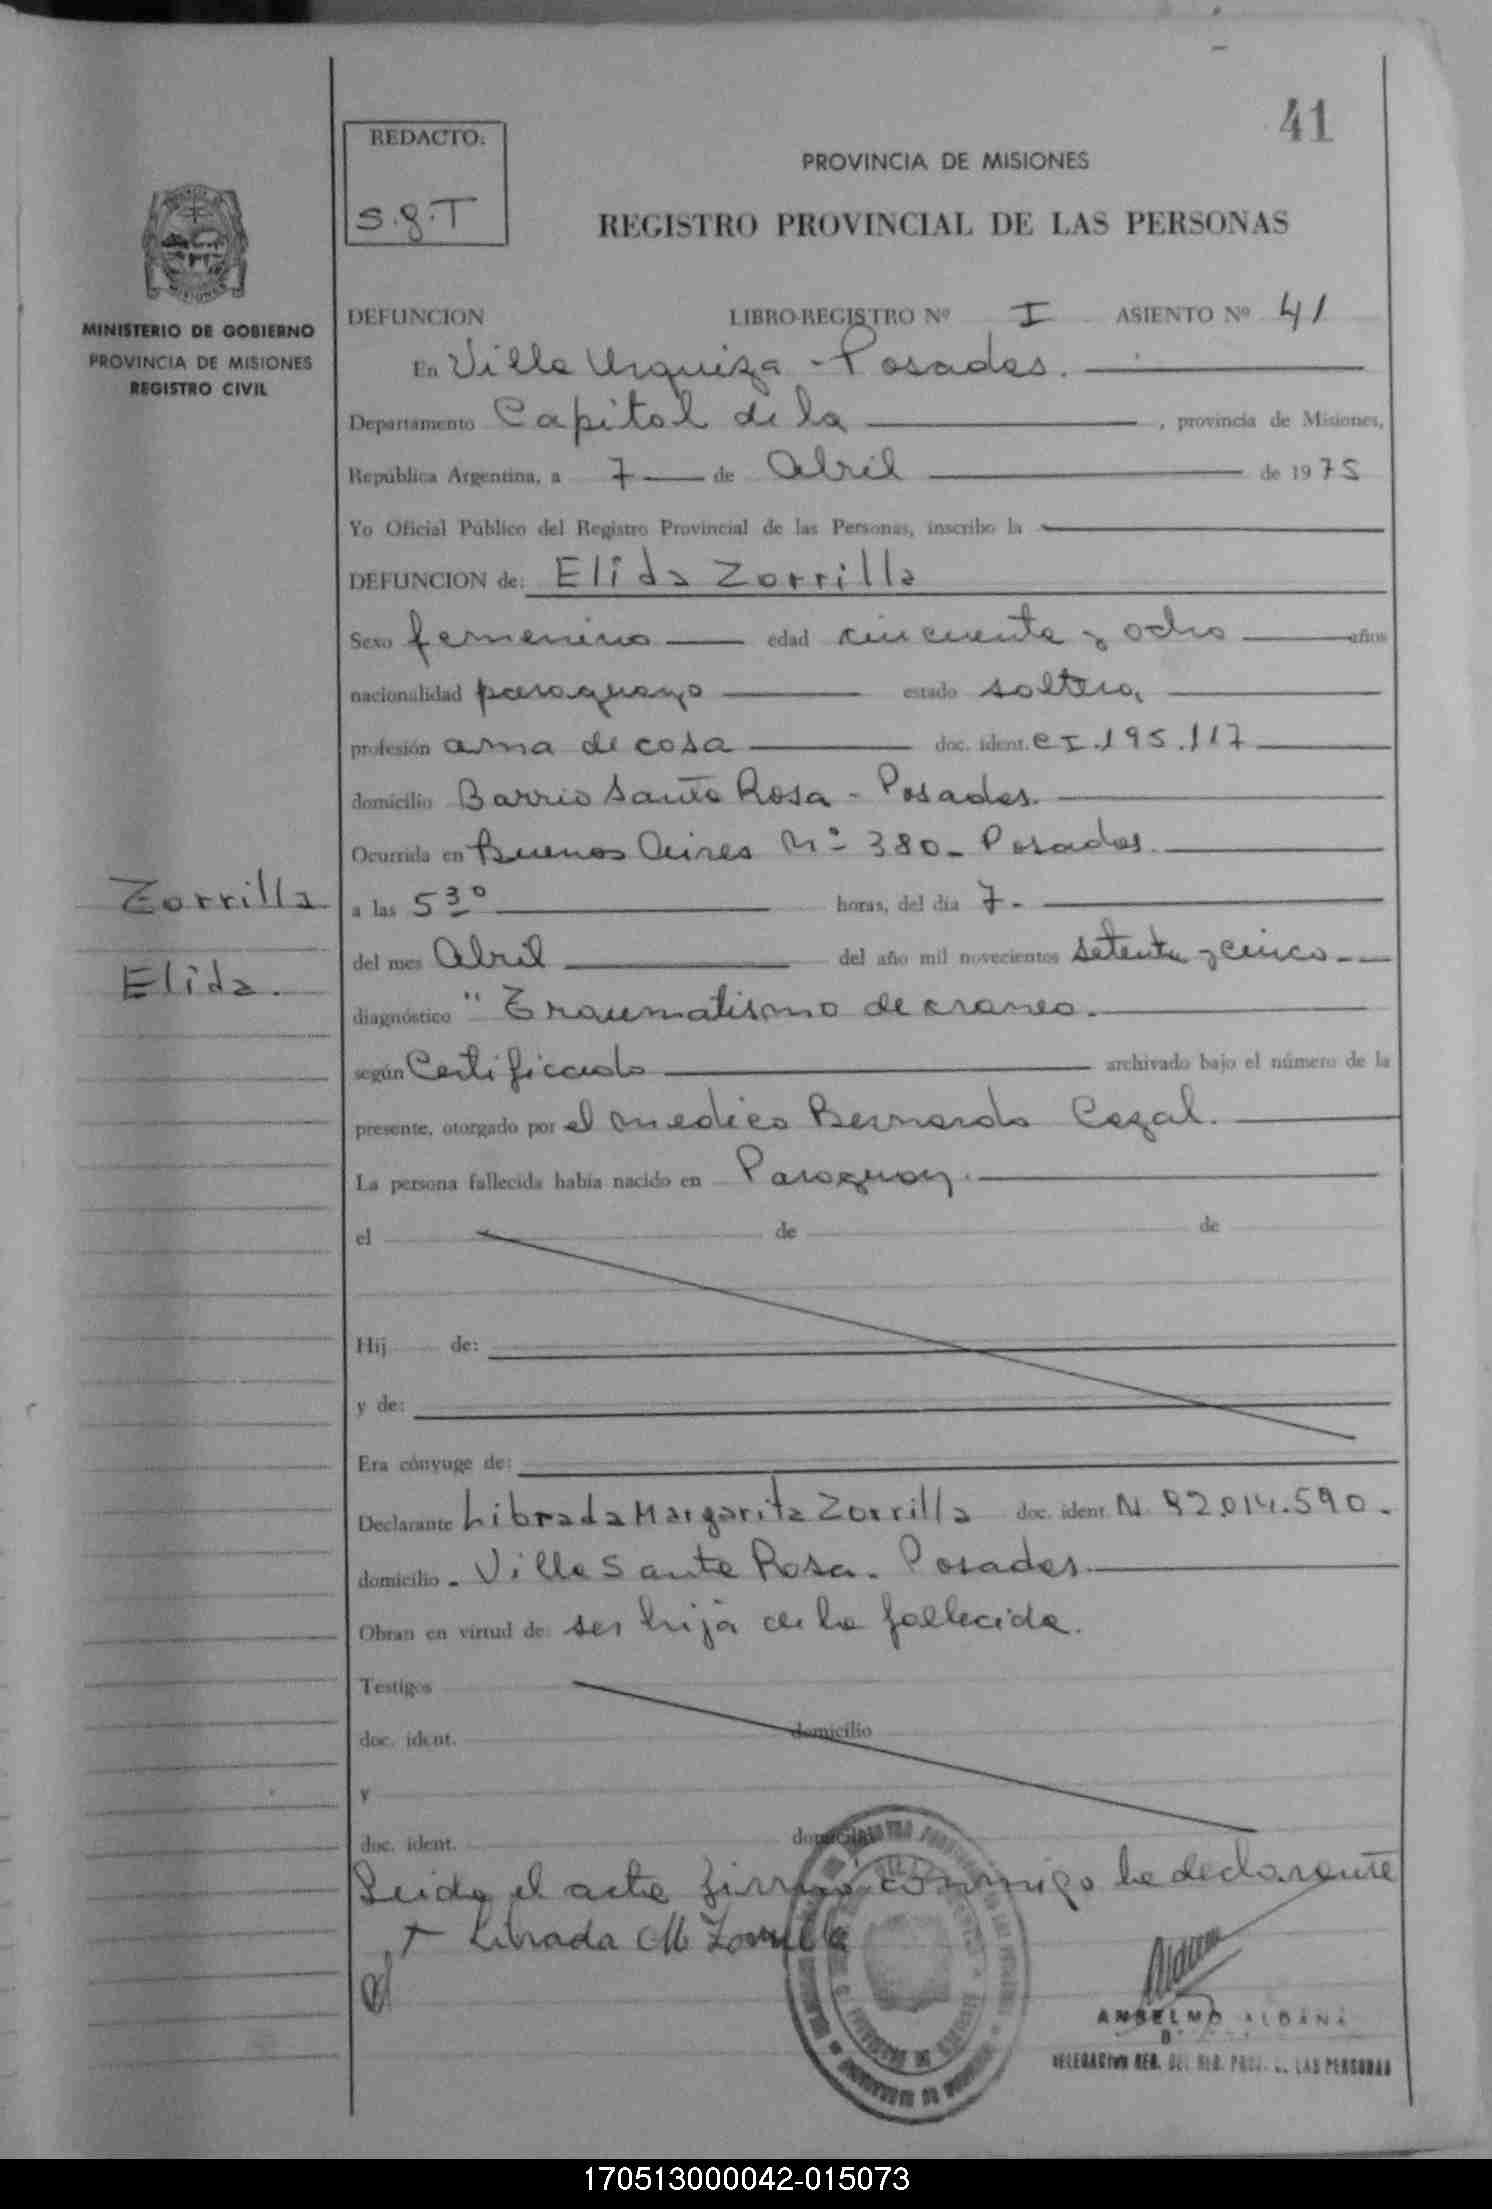 41
REDACTO:
S.g.T
PROVINCIA DE MISIONES
REGISTRO PROVINCIAL DE LAS PERSONAS
MINISTERIO DE GOBIERNO
PROVINCIA DE MISIONES
REGISTRO CIVIL
DEFUNCION LIBRO-REGISTRO Nº I ASIENTO Nº 41
En Villa Urquiza - Posadas.
Departamento Capital de la , provincia de Misiones,
República Argentina, a 7 de Abril de 1975
Yo Oficial Público del Registro Provincial de las Personas, inscribo la
DEFUNCION de: Elida Zorrilla
Sexo femenino edad cincuenta y ocho años
nacionalidad paraguaya estado soltera,
profesión ama de casa doc. ident. CI.195.117
domicilio Barrio Santa Rosa - Posadas.
Ocurrida en Buenos Aires Nº 380 - Posadas.
Zorrilla
a las 5 30 horas, del día 7.
Elida.
del mes Abril del año mil novecientos setenta y cinco
diagnóstico " Traumatismo de craneo.
según Certificado archivado bajo el número de la
presente, otorgado por el medico Bernardo Cazal.
La persona fallecida había nacido en Paraguay.
el de de
Hij de:
y de:
Era cónyuge de:
Declarante Librada Margarita Zorrilla doc. ident. N. 92.014.590.
domicilio - Villa Santa Rosa. Posadas
Obran en virtud de: ser hija de la fallecida.
Testigos
doc. ident. domicilio
y
doc. ident. domicilio
Leida el acta firmó conmigo la declarante
+ Librada M Zorrilla
ANSELMO ALDANA
DELEGACION REG. DEL REG. PROV. DE LAS PERSONAS
170513000042-015073